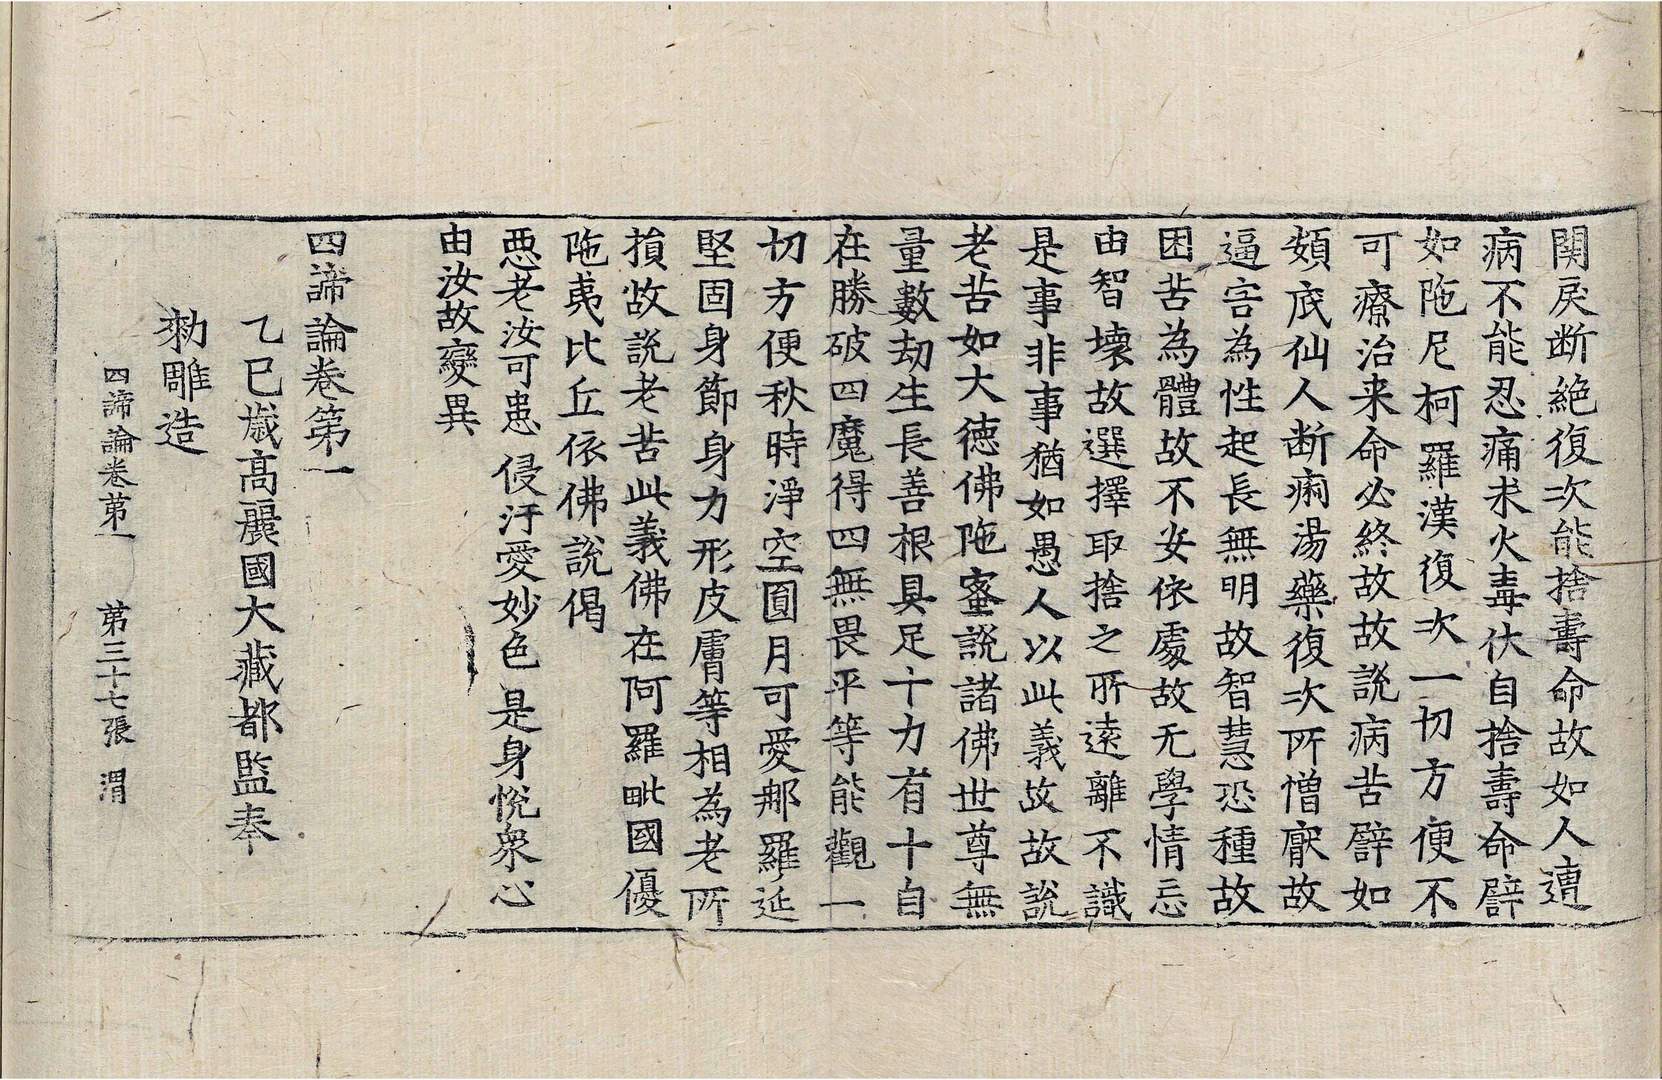 関戾断絶復次能捨壽命故如人遭
病不能忍痛求火毒伏自捨壽命譬
如陁尼柯羅漢復次一切方便不
可療治来命必終故故說病苦譬如
頞底仙人断痢湯藥復次所憎厭故
逼害為性起長無明故智慧恐種故
困苦為體故不安依處故无學情忌
由智壊故選擇取捨之所遠離不識
是事非事猶如愚人以此義故故說
老苦如大德佛陁蜜說諸佛世尊無
量數劫生長善根具足十力有十自
在勝破四魔得四無畏平等能觀一
切方便秋時淨空圓月可愛那羅延
堅固身節身力形皮膚等相為老所
損故說老苦此義佛在阿羅毗國優
陁夷比丘依佛說偈
惡老汝可患 侵汙愛妙色 是身悅衆心
由汝故變異
四諦論卷第一
乙巳歳髙麗國大藏都監奉
勑雕造
四諦論卷苐一 苐三十七張 渭